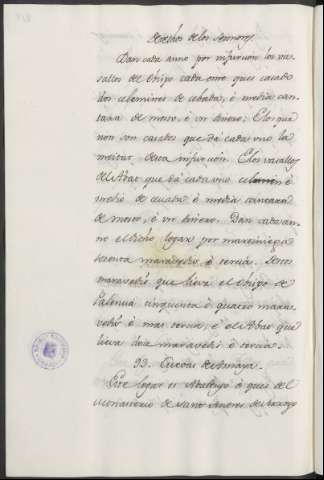 derechos de los sennores
Dan cada anno por infurcion los va-
sallos del Obispo cada orre ques casado
dos celemines de cebada, è media can-
tara de mosto, è un dinero; E los que
non son casados que dà cada uno la
meitat desta infurcion. E los vasallos
del Abat que dà cada uno celemin è
medio de cebada è media cantara
de mosto, è un dinero. Dan cada an-
no el dicho logar por marciniega
sesenta maravedis, è tercia. Destos
maravedis que lieva el Obispo de
Palencia cinquenta è quatro mara-
vedis è mas tercia, è el Abat que
lieva dose maravedis è tercia.
93. Cuevas de Amaya.
Este logar es Abadengo è ques del
Monasterio de Santo Andres de